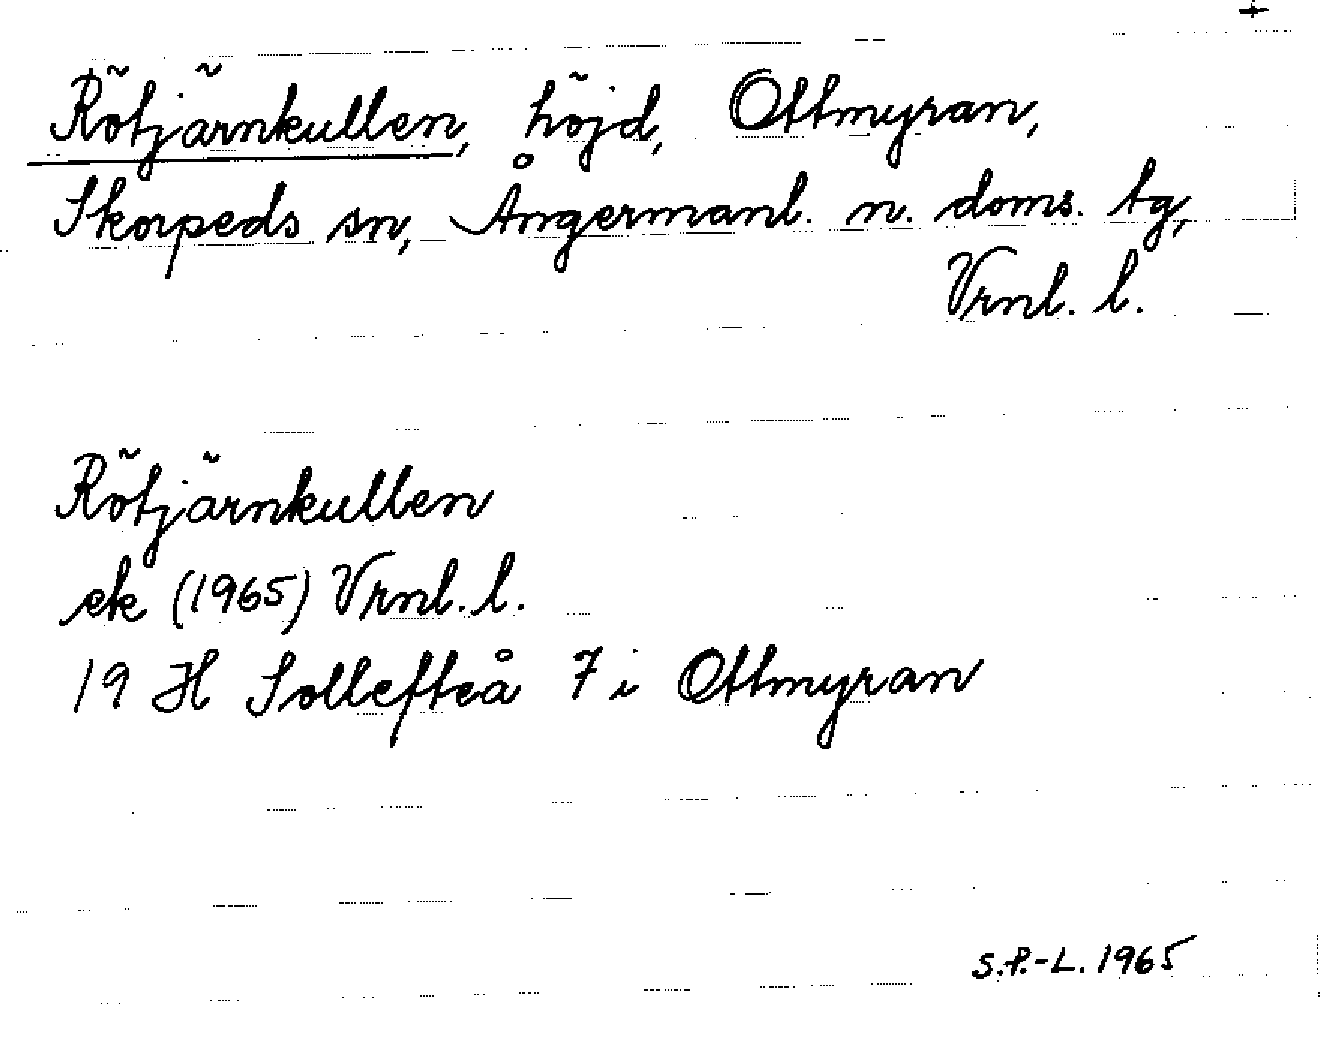 +
Rötjärnkullen, höjd, Ottmyran,
Skorpeds sn, Ångermanl. n. doms. tg,
Vrnl. l.
Rötjärnkullen
ek (1965) Vrnl. l.
19 H Sollefteå 7 i Ottmyran
S.P.-L. 1965